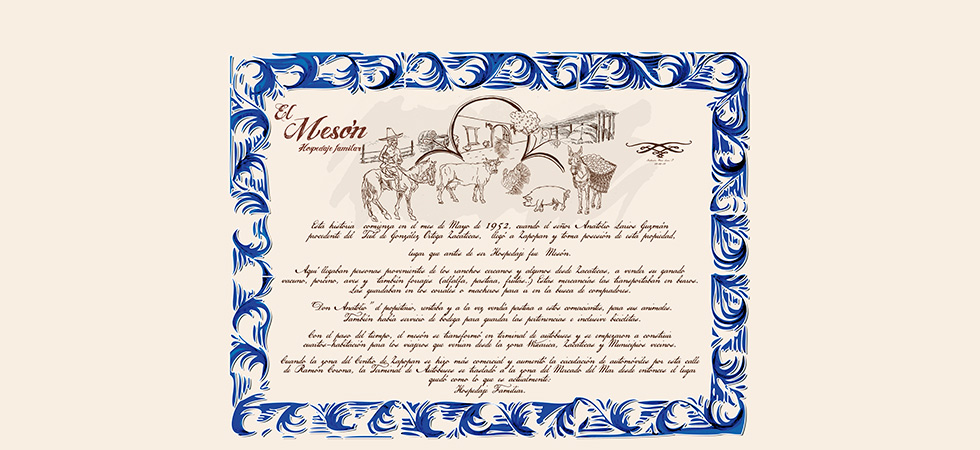 El
Mesón
Hospedaje familiar
Esta historia comienza en el mes de Mayo de 1952, cuando el señor Anatolio Larios Guzmán
procedente del Teúl de González Ortega Zacatecas, llegó a Zapopan y toma posesión de esta propiedad,
lugar que antes de ser Hospedaje fue Mesón.
Aquí llegaban personas provenientes de los ranchos cercanos y algunos desde Zacatecas, a vender su ganado
vacuno, porcino, aves y también forrajes (alfalfa, pastura, frutas.) Estas mercancías las transportaban en burros.
Las guardaban en los corrales o macheros para ir en la busca de compradores.
"Don Anatolio" el propietario, rentaba y a la vez vendía pastura a estos comerciantes, para sus animales.
También había servicio de bodega para guardar las pertenencias e inclusive bicicletas.
Con el paso del tiempo, el mesón se transformó en terminal de autobuses y se empezaron a construir
cuartos-habitación para los viajeros que venían desde la zona Wixárica, Zacatecas y Municipios vecinos.
Cuando la zona del Centro de Zapopan se hizo más comercial y aumentó la circulación de automóviles por esta calle
de Ramón Corona, la Terminal de Autobuses se trasladó a la zona del Mercado del Mar desde entonces el lugar
quedó como lo que es actualmente:
Hospedaje Familiar.